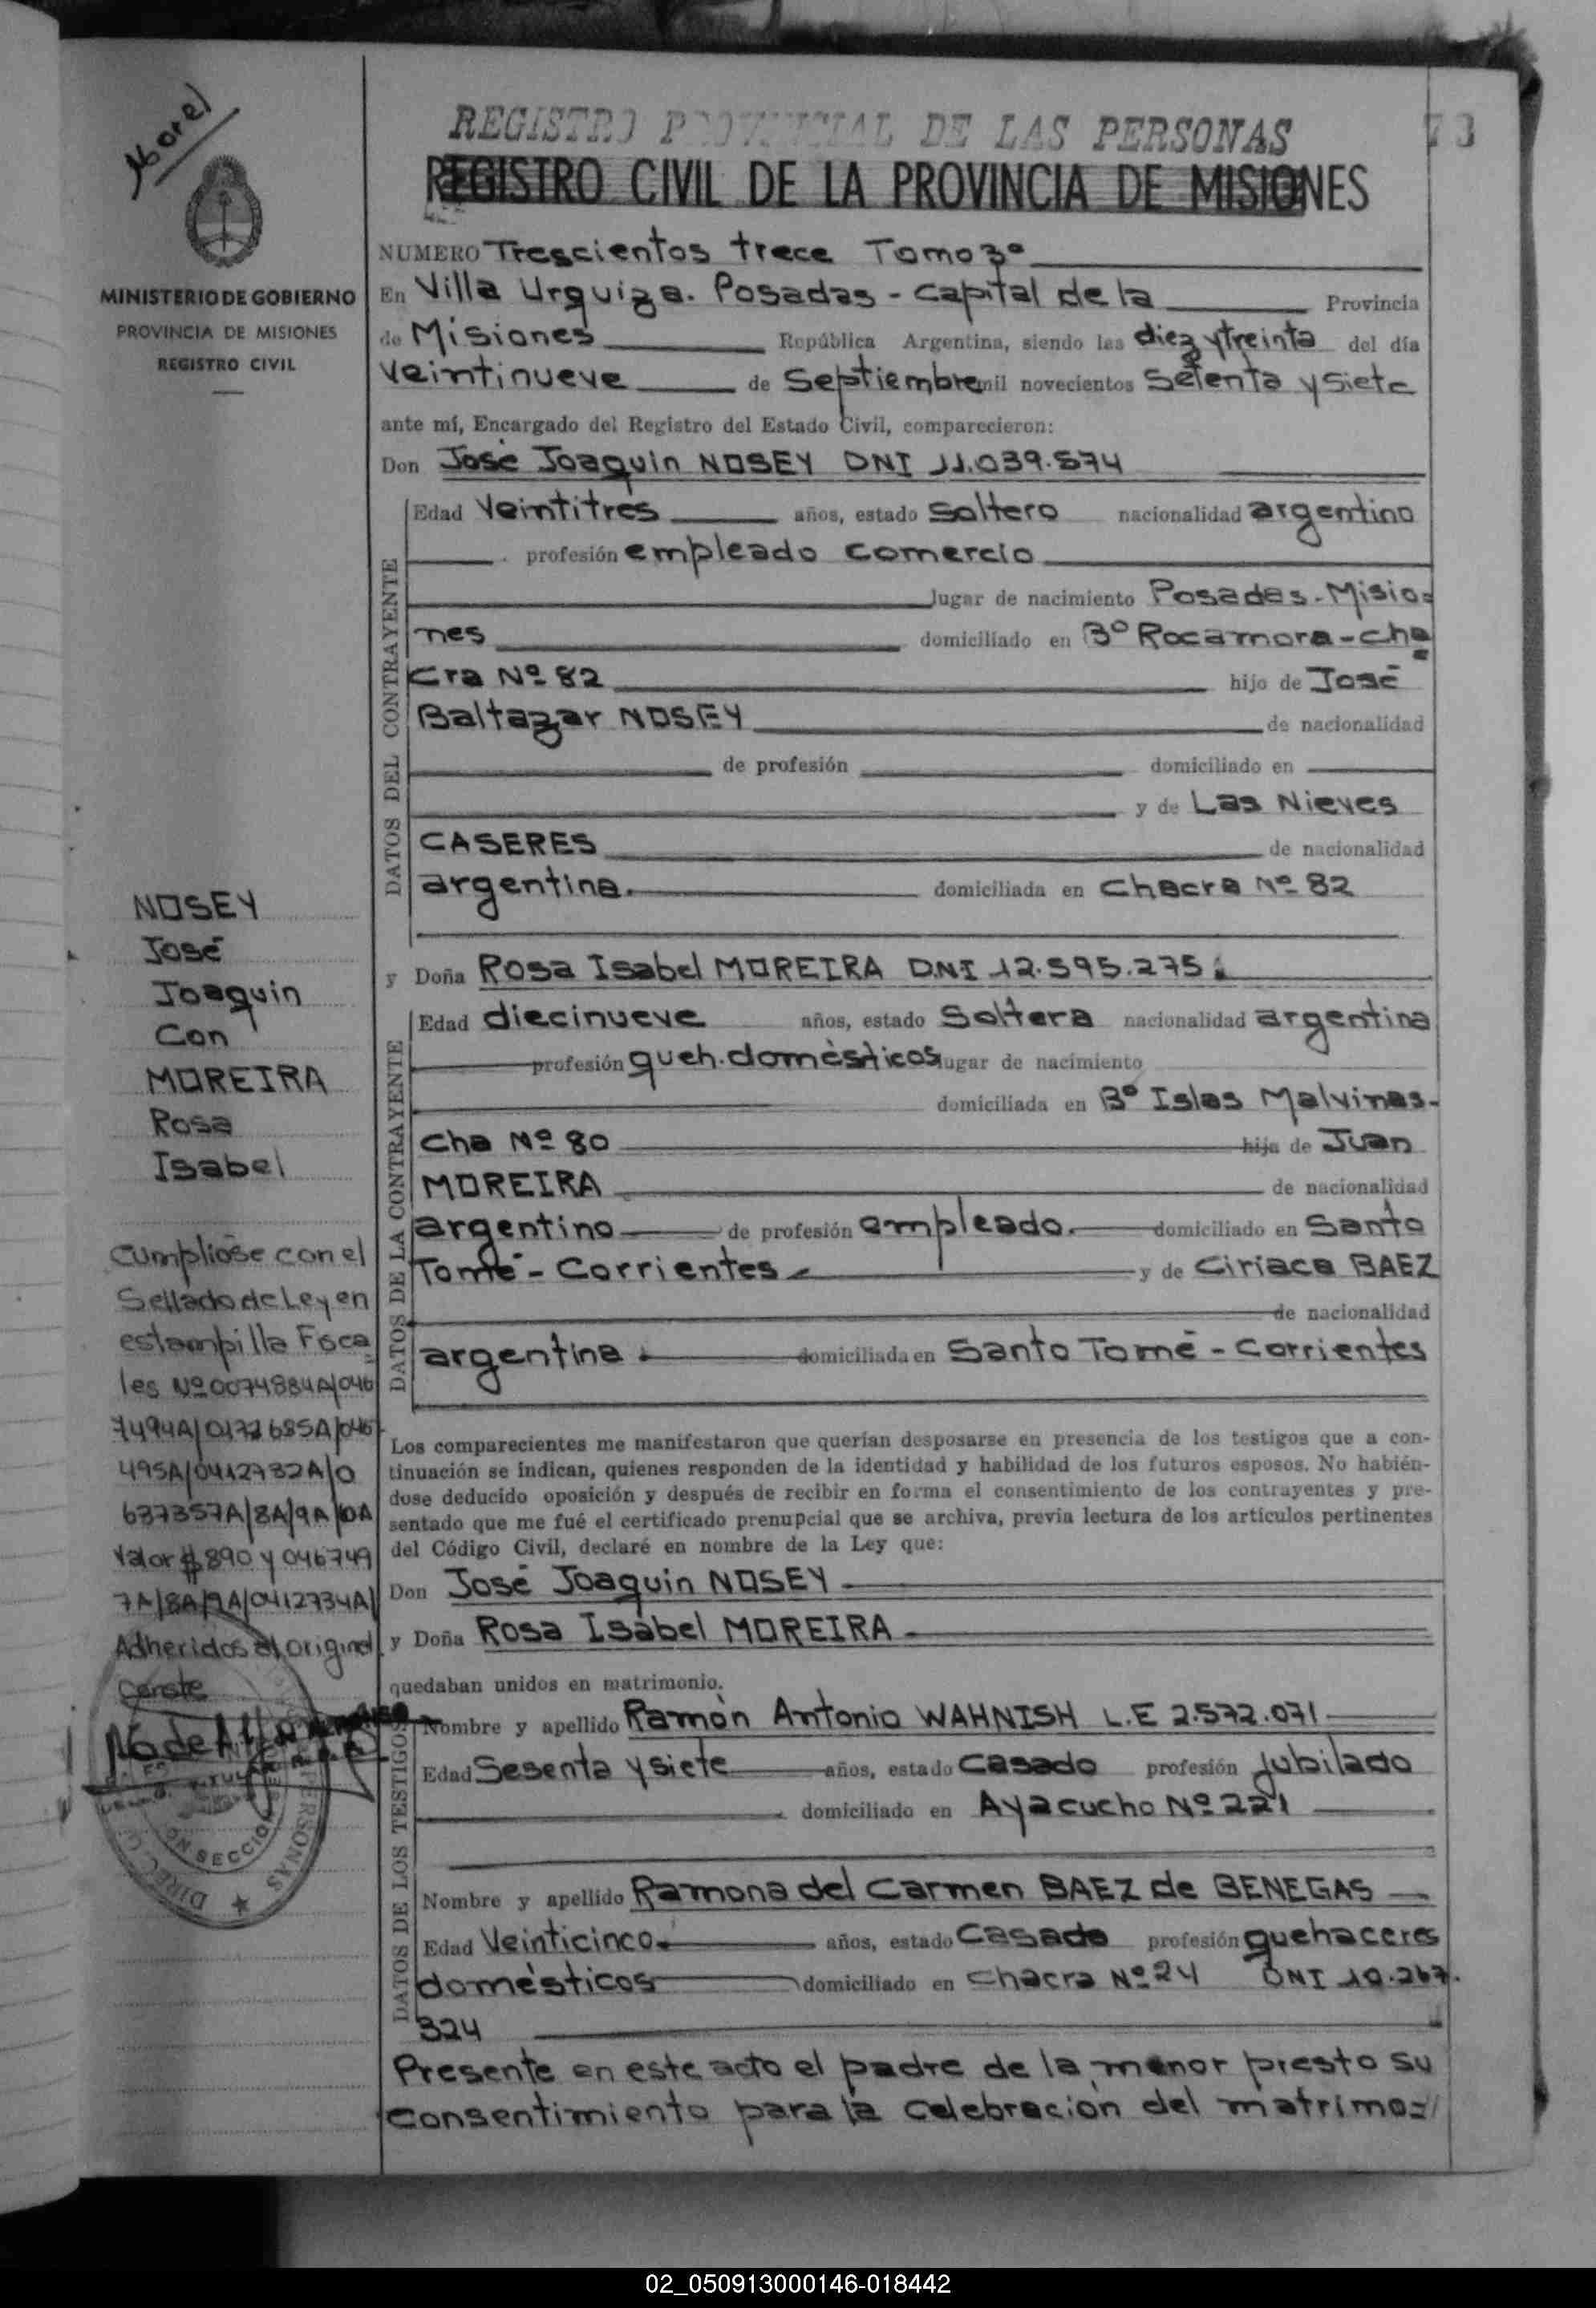 REGISTRO PROVINCIAL DE LAS PERSONAS
73
REGISTRO CIVIL DE LA PROVINCIA DE MISIONES
MINISTERIO DE GOBIERNO
PROVINCIA DE MISIONES
REGISTRO CIVIL
NUMERO Trescientos trece Tomo 3º
En Villa Urquiza. Posadas - Capital de la Provincia
de Misiones República Argentina, siendo las diez y treinta del día
veintinueve de Septiembre mil novecientos Setenta y siete
ante mí, Encargado del Registro del Estado Civil, comparecieron:
Don José Joaquin NOSEY DNI 11.039.574
DATOS DEL CONTRAYENTE
Edad Veintitres años, estado Soltero nacionalidad argentino
profesión empleado comercio
lugar de nacimiento Posadas - Misio=
nes domiciliado en Bº Rocamora - cha
cra Nº 82 hijo de José
Baltazar NOSEY de nacionalidad
de profesión domiciliado en
y de Las Nieves
CASERES de nacionalidad
argentina. domiciliada en Chacra Nº 82
y Doña Rosa Isabel MOREIRA D.N.I 12.595.275.
DATOS DE LA CONTRAYENTE
Edad diecinueve años, estado Soltera nacionalidad argentina
profesión queh. domésticos lugar de nacimiento
domiciliada en Bº Islas Malvinas -
Cha Nº 80 hija de Juan
MOREIRA de nacionalidad
argentino de profesión empleado. domiciliado en Santo
Tomé - Corrientes y de Ciriaca BAEZ
de nacionalidad
argentina. domiciliada en Santo Tomé - Corrientes
Los comparecientes me manifestaron que querían desposarse en presencia de los testigos que a con-
tinuación se indican, quienes responden de la identidad y habilidad de los futuros esposos. No habién-
dose deducido oposición y después de recibir en forma el consentimiento de los contrayentes y pre-
sentado que me fué el certificado prenupcial que se archiva, previa lectura de los artículos pertinentes
del Código Civil, declaré en nombre de la Ley que:
Don José Joaquin NOSEY
y Doña Rosa Isabel MOREIRA
quedaban unidos en matrimonio.
DATOS DE LOS TESTIGOS
Nombre y apellido Ramón Antonio WAHNISH L.E 2.572.071
Edad Sesenta y siete años, estado Casado profesión jubilado
domiciliado en Ayacucho Nº 221
Nombre y apellido Ramona del Carmen BAEZ de BENEGAS
Edad Veinticinco. años, estado Casada profesión quehaceres
domésticos domiciliado en Chacra Nº 24 DNI 10.267.
324
Presente en este acto el padre de la menor presto su
consentimiento para la celebración del matrimo=
NOSEY
José
Joaquin
Con
MOREIRA
Rosa
Isabel
Cumpliose con el
Sellado de Ley en
estampilla Fisca
les Nº 0074884A/046
7494A/0172685A/046
495A/0412732A/0
637357A/8A/9A/0A
Valor $ 890 y 046749
7A/8A/9A/0412734A/
Adheridos al original
Conste
DIREC. PERSONAS
SECCION
02_050913000146-018442